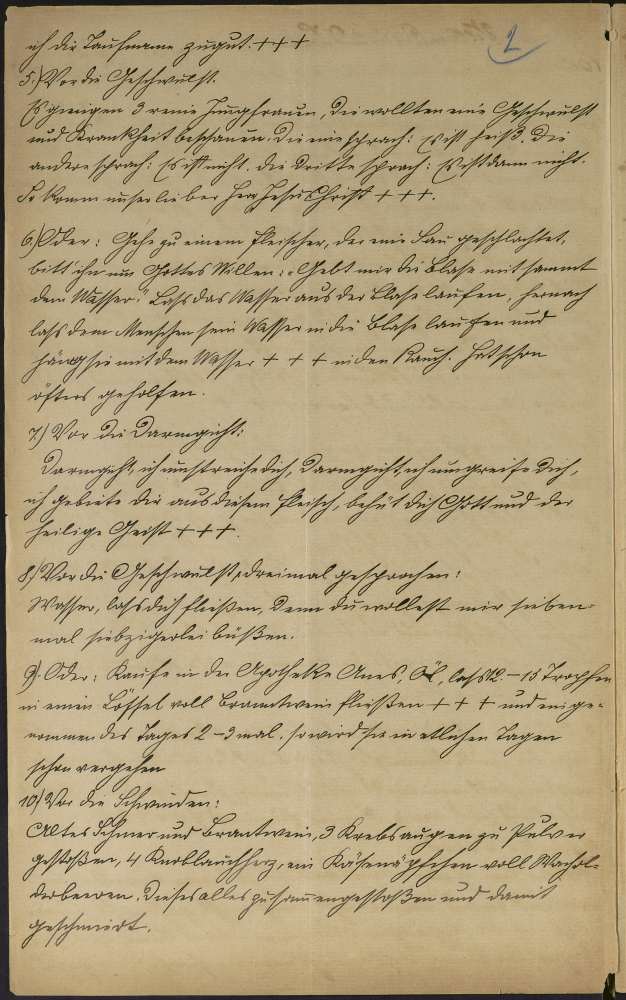 2
ich die Taufname zugut. + + +
5.) Vor die Geschwulst.
Es giengen 3 reine Jungfrauen, die wollten eine Geschwulst
und Krankheit beschauen. Die eine sprach: Es ist heiß. Die
andere sprach: Es ist nicht. Die dritte sprach: Es ist dann nicht.
So komm unser lieber Herr Jesus Christ + + +.
6.) Oder: Gehe zu einem Fleischer, der eine Sau geschlachtet,
bitt' ihn um Gottes Willen: "Gebt mir die Blase mit sammt
dem Wasser." Lass das Wasser aus der Blase laufen, hernach
lass dem Menschen sein Wasser in die Blase laufen und
häng sie mit dem Wasser + + + in den Rauch. Hat schon
öfters geholfen.
7.) Vor die Darmgicht:
Darmgicht, ich umstreiche dich, Darmgicht, ich umgreife dich,
ich gebiete dir aus diesem Fleisch, behüt dich Gott und der
heilige Geist + + +.
8.) Vor die Geschwulst, dreimal gesprochen:
Wasser, lass dich fließen, denn du wollest mir sieben-
mal siebzigerlei büßen.
9.) Oder: Kaufe in der Apotheke Anes, Öl, lass 12.-15 Tropfen
in einen Löffel voll Branntwein fließen + + + und einge-
nommen des Tages 2-3 mal, so wird sie in etlichen Tagen
schon vergehen
10.) Vor die Schwinden:
Altes Schmer und Brantwein, 3 Krebsaugen zu Pulver
gestoßen, 4 Knoblauchherz, ein Käsenäpfchen voll Wachol-
derbeeren. Dieses alles zusammengestoßen und damit
geschmiert.